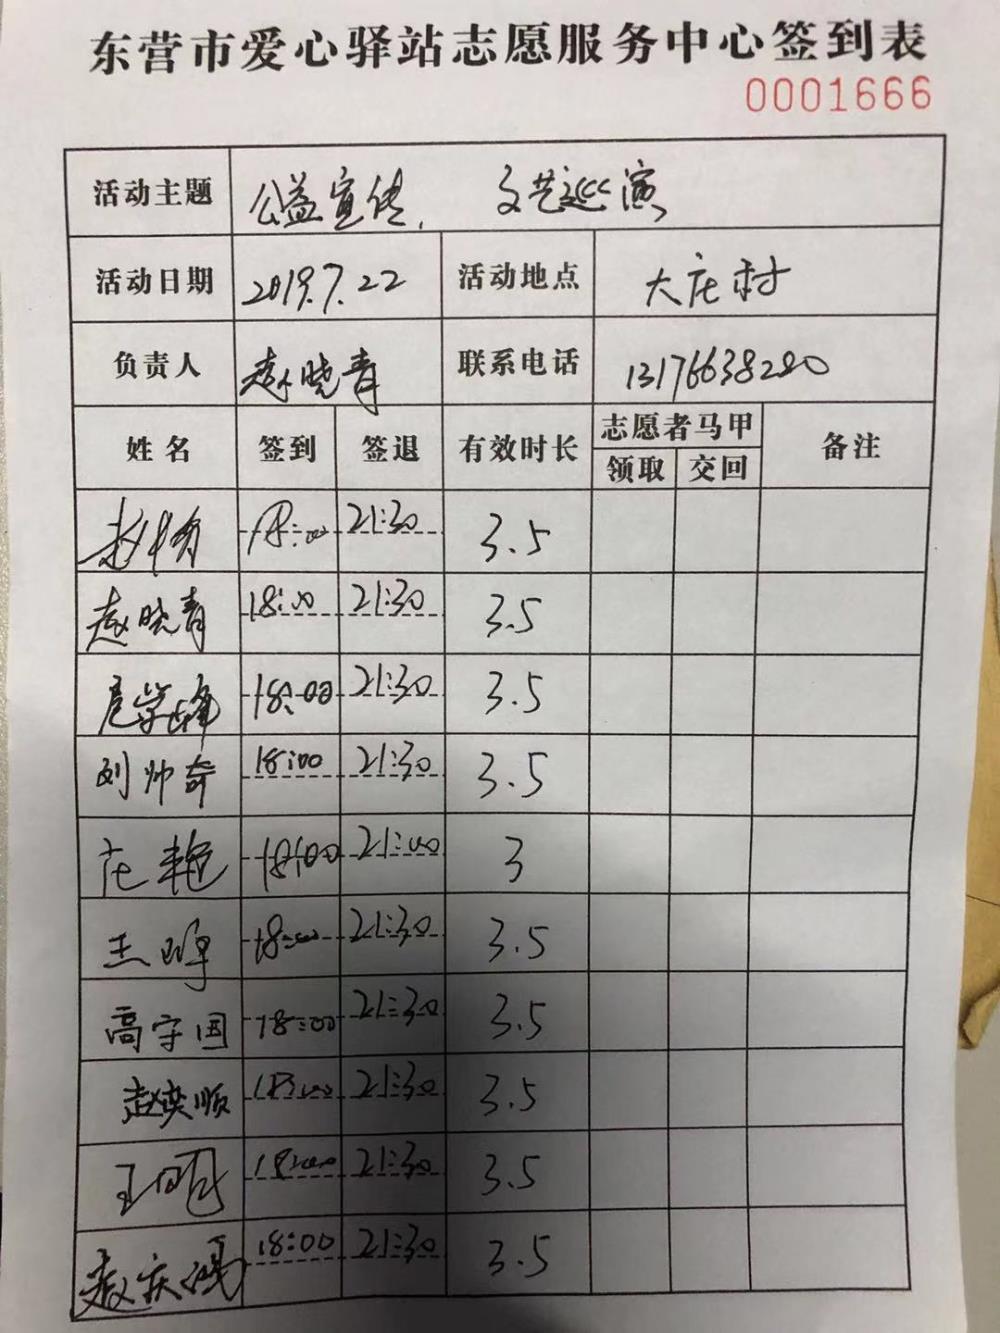 东营市爱心驿站志愿服务中心签到表
0001666
活动主题 公益宣传, 文艺巡演
活动日期 2019.7.22 活动地点 大庄村
负责人 赵晓青 联系电话 13176638280
姓名 签到 签退 有效时长 志愿者马甲 备注
领取 交回
18:00 21:30 3.5
赵晓青 18:00 21:30 3.5
18:00 21:30 3.5
刘帅奇 18:00 21:30 3.5
庄艳 18:00 21:00 3
王 18:00 21:30 3.5
高守国 18:00 21:30 3.5
赵奕顺 18:00 21:30 3.5
王明 18:00 21:30 3.5
赵庆鸿 18:00 21:30 3.5